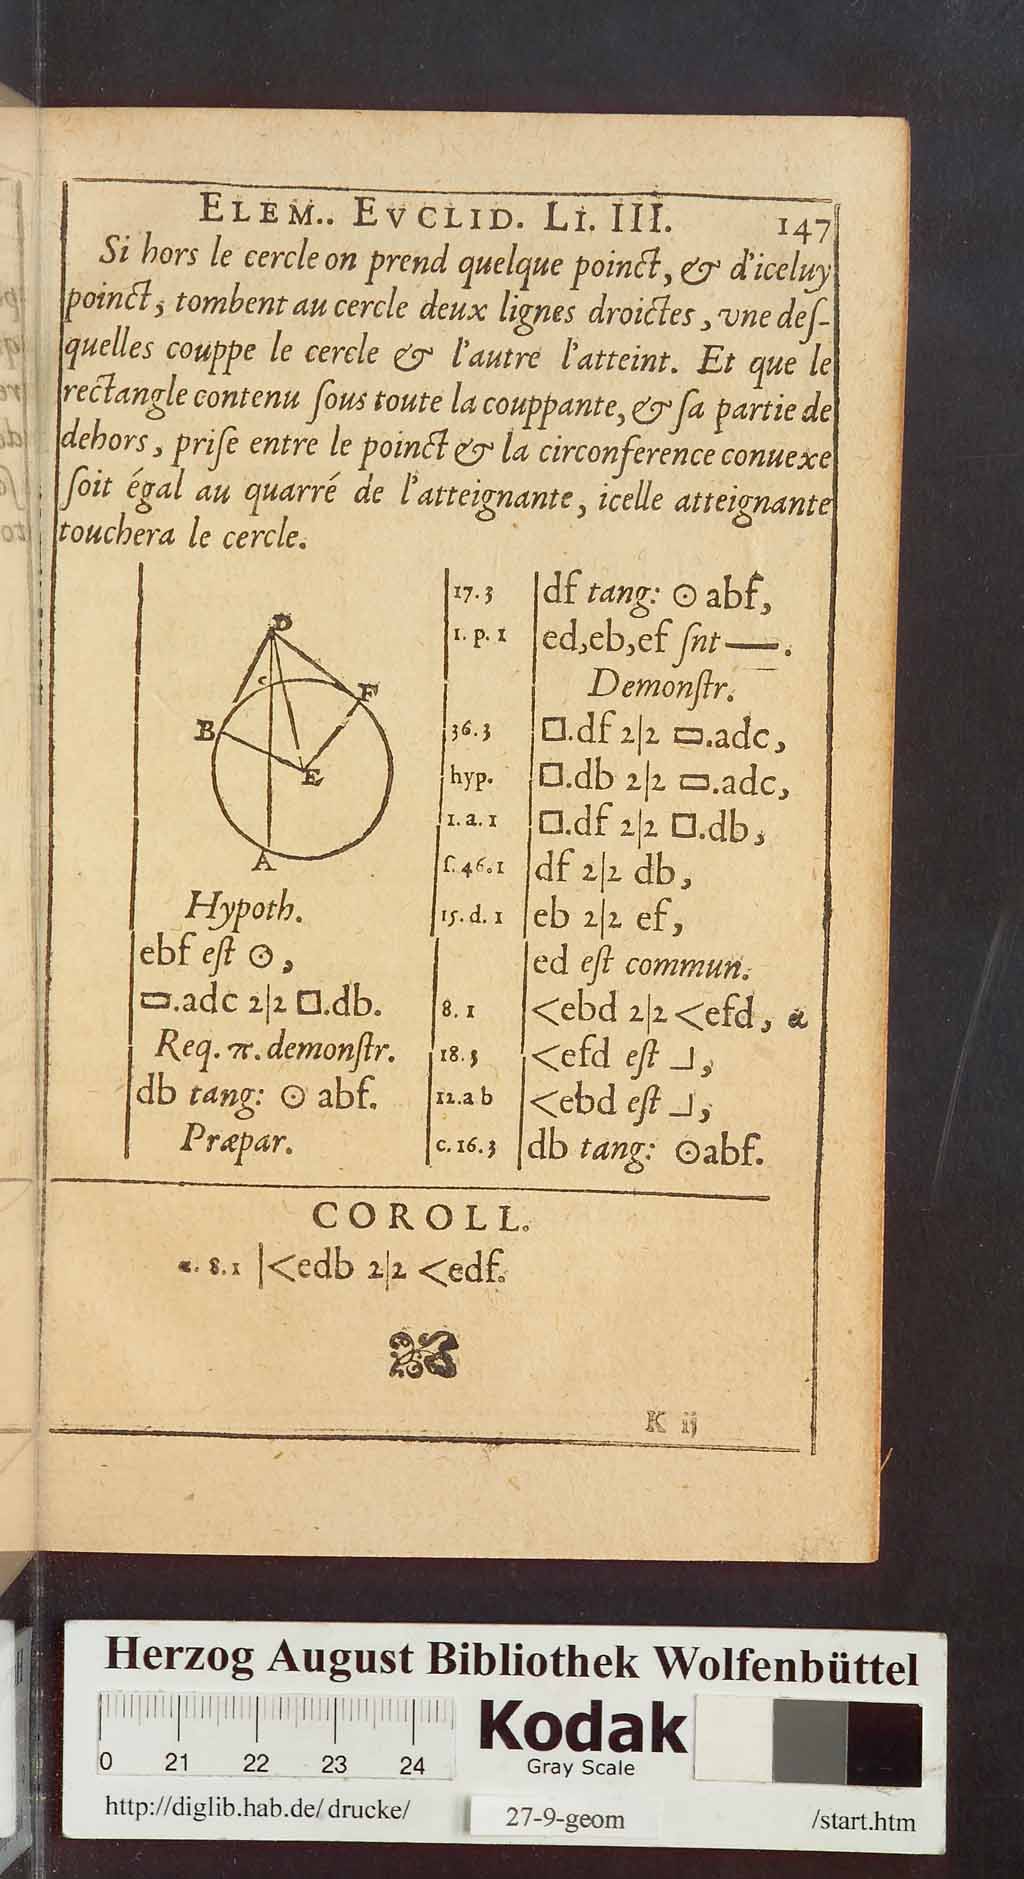 ELEM.. EVCLID. LI. III. 147
Si hors le cercle on prend quelque poinct, & d'iceluy
poinct, tombent au cercle deux lignes droictes, vne deſ-
quelles couppe le cercle & l'autre l'atteint. Et que le
rectangle contenu ſous toute la couppante, & ſa partie de
dehors, priſe entre le poinct & la circonference conuexe
ſoit égal au quarré de l'atteignante, icelle atteignante
touchera le cercle.
D
c
F
B
E
A
Hypoth.
ebf eſt ⊙,
▭.adc 2|2 □.db.
Req. π. demonſtr.
db tang: ⊙ abf.
Præpar.
17. 3 | df tang: ⊙ abf,
1. p. 1 | ed,eb,ef ſnt —.
Demonſtr.
36. 3 | □.df 2|2 ▭.adc,
hyp. | □.db 2|2 ▭.adc,
1. a. 1 | □.df 2|2 □.db,
ſ. 46. 1 | df 2|2 db,
15. d. 1 | eb 2|2 ef,
ed eſt commun.
8. 1 | <ebd 2|2 <efd, α
18. 3 | <efd eſt ⅃,
12. a b | <ebd eſt ⅃,
c. 16. 3 | db tang: ⊙abf.
COROLL.
α. 8. 1 | <edb 2|2 <edf.
K ij
Herzog August Bibliothek Wolfenbüttel
0 21 22 23 24
Kodak
Gray Scale
http://diglib.hab.de/drucke/ 27-9-geom /start.htm